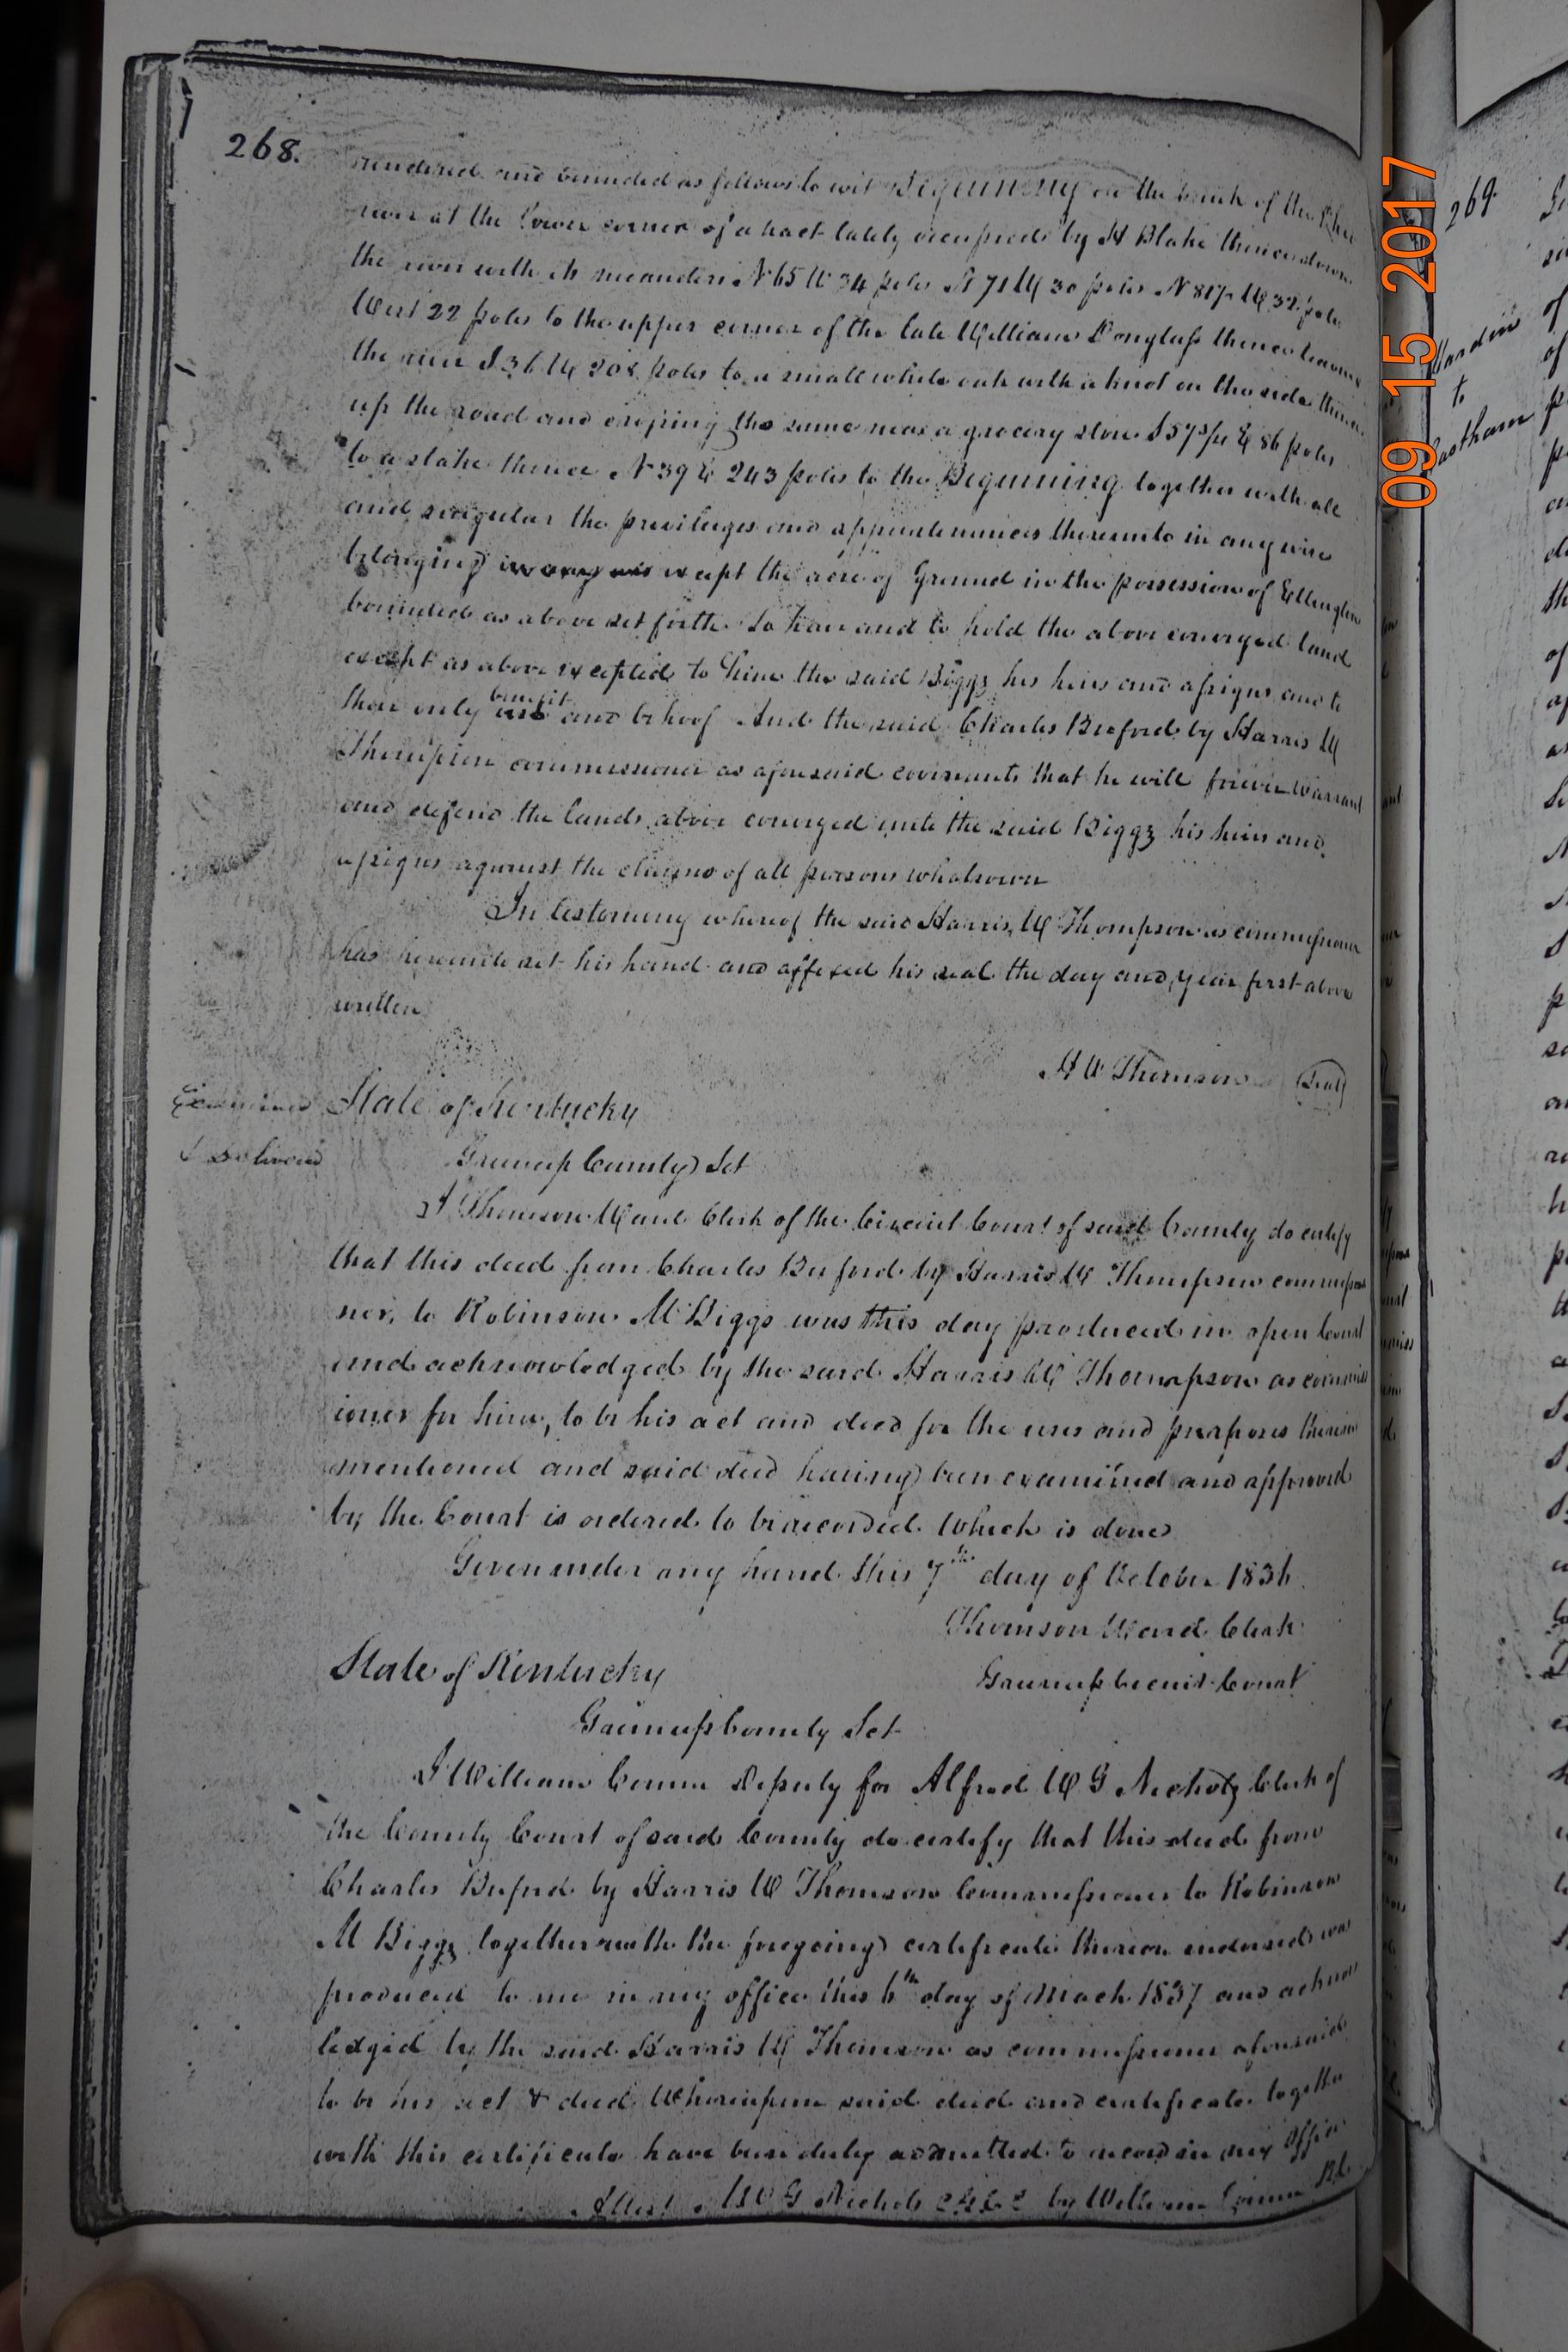 268.
rendered and bounded as follows to wit Beginning on the bank of the Ohio
river at the lower corner of a tract lately occupied by H Blake thence down
the river with its meanders N 65 W 34 poles N 71 W 30 poles N 81½ W 32 poles
West 22 poles to the upper corner of the late William Douglass thence leaving
the river S 36 W 208 poles to a small white oak with a knot on the side thence
up the road and crossing the same near a grocery store S 57 3/4 E 86 poles
to a stake thence N 39 E 243 poles to the Beginning together with all
and singular the privileges and appurtenances thereunto in any wise
belonging except the acre of Ground in the possession of Ellington
bounded as above set forth. To have and to hold the above conveyed land
except as above excepted to him the said Biggs his heirs and assigns and to
their only benefit and behoof And the said Charles Buford by Harris W
Thompson commissioner as aforesaid covenants that he will forever warrant
and defend the lands above conveyed unto the said Biggs his heirs and
assigns against the claims of all persons whatsoever
In testimony whereof the said Harris W Thompson as commissioner
has hereunto set his hand and affixed his seal the day and year first above
written
H W Thomson (Seal)
Examined
& Delivered
State of Kentucky
Greenup County Sct
I Thomson Ward Clerk of the Circuit Court of said County do certify
that this deed from Charles Buford by Harris W Thompson commissio
ner, to Robinson M Biggs was this day produced in open Court
and acknowledged by the said Harris W Thompson as commiss
ioner for him, to be his act and deed for the uses and purposes therein
mentioned and said deed having been examined and approved
by the Court is ordered to be recorded. Which is done
Given under my hand this 7th day of October 1836.
Thomson Ward Clerk
Greenup Circuit Court
State of Kentucky
Greenup County Sct
I William Corum Deputy for Alfred W G Nichols Clerk of
the County Court of said County do certify that this deed from
Charles Buford by Harris W Thomson Commissioner to Robinson
M Biggs together with the foregoing certificate thereon endorsed was
produced to me in my office this 6th day of March 1837 and acknow
ledged by the said Harris W Thomson as commissioner aforesaid
to be his act & deed. Whereupon said deed and certificate together
with this certificate have been duly admitted to record in my office
Attest A W G Nichols by William Corum
269
Hardin
to
Eastham
09 15 2017